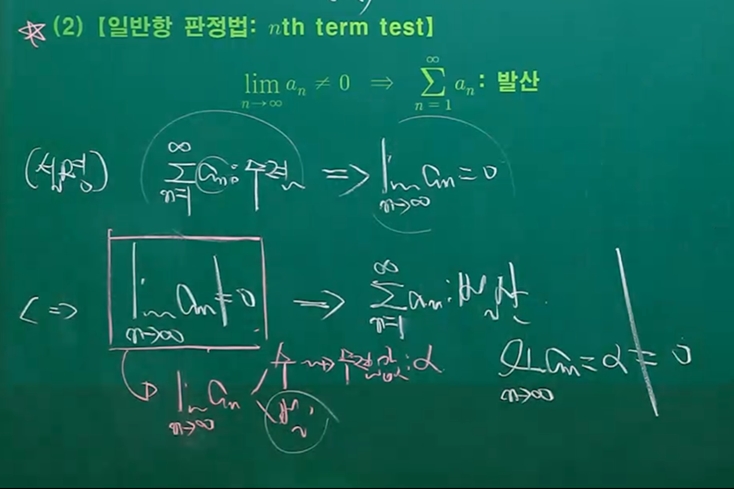 ☆ (2) 【일반항 판정법: nth term test】
lim n→∞ aₙ ≠ 0 ⇒ ∑ n=1 ∞ aₙ : 발산
(설명) ∑ n=1 ∞ aₙ : 수렴 ⇒ lim n→∞ aₙ = 0
<=> lim n→∞ aₙ ≠ 0 ⇒ ∑ n=1 ∞ aₙ : 발산
lim n→∞ aₙ 수 → 수렴값 : α
발산
lim n→∞ aₙ = α ≠ 0